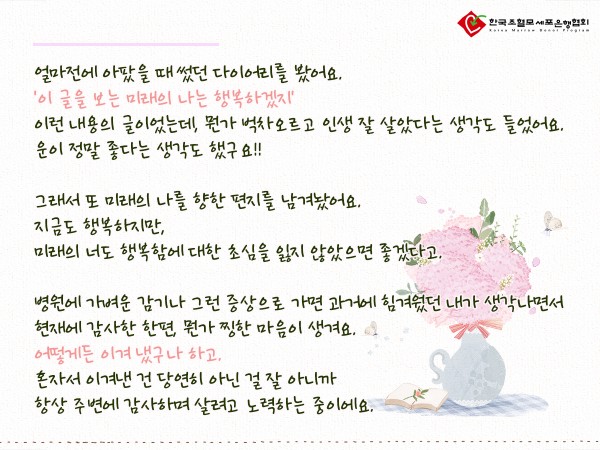 한국조혈모세포은행협회
Korea Marrow Donor Program
얼마전에 아팠을 때 썼던 다이어리를 봤어요.
'이 글을 보는 미래의 나는 행복하겠지'
이런 내용의 글이었는데, 뭔가 벅차오르고 인생 잘 살았다는 생각도 들었어요.
운이 정말 좋다는 생각도 했구요!!
그래서 또 미래의 나를 향한 편지를 남겨놨어요.
지금도 행복하지만,
미래의 너도 행복함에 대한 초심을 잃지 않았으면 좋겠다고.
병원에 가벼운 감기나 그런 증상으로 가면 과거에 힘겨웠던 내가 생각나면서
현재에 감사한 한편, 뭔가 찡한 마음이 생겨요.
어떻게든 이겨 냈구나 하고.
혼자서 이겨낸 건 당연히 아닌 걸 잘 아니까
항상 주변에 감사하며 살려고 노력하는 중이에요.